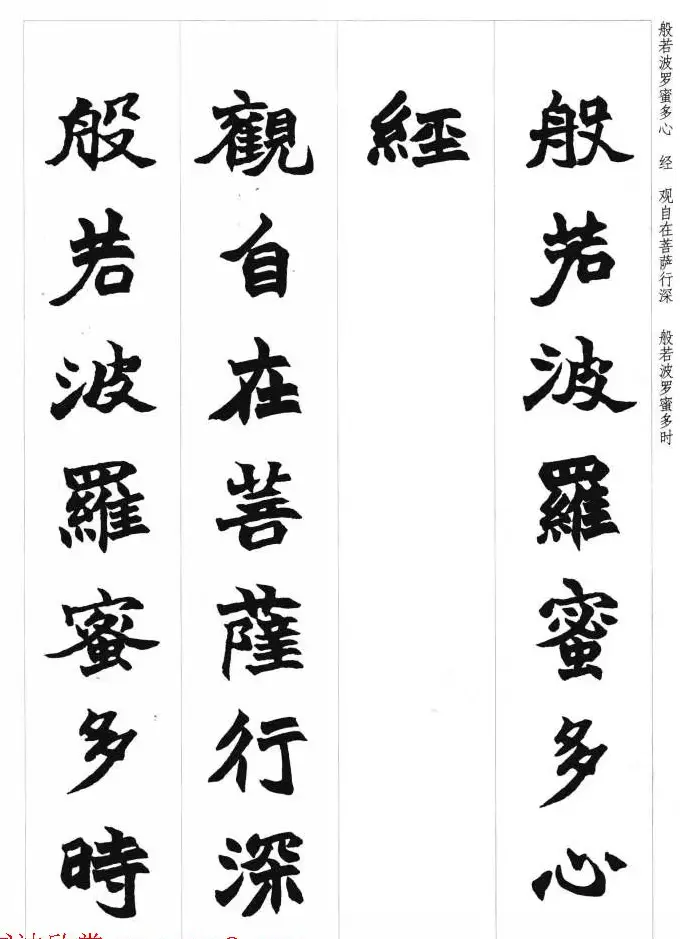 般若波罗蜜多心 经 观自在菩萨行深 般若波罗蜜多时
般若波羅蜜多心
經
觀自在菩薩行深
般若波羅蜜多時